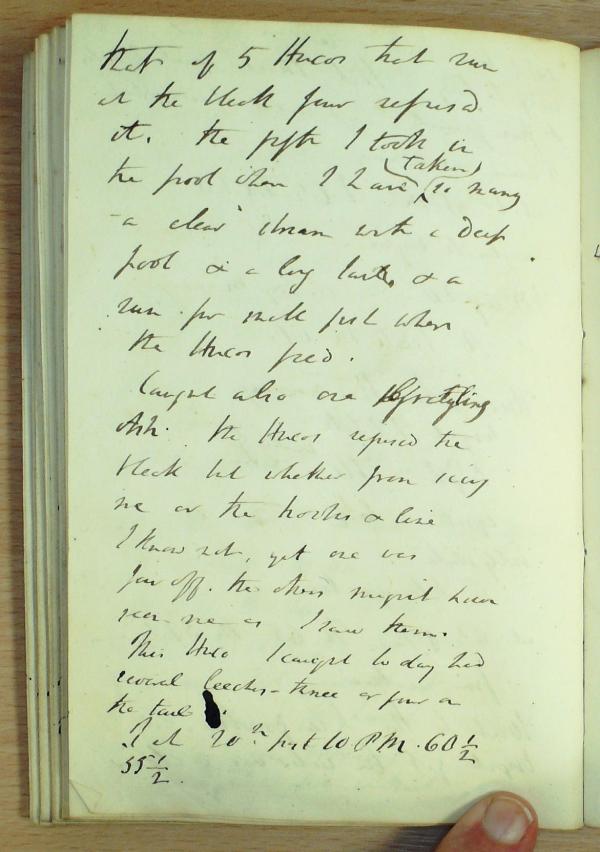 that of 5 Hucos that run
at the bleak four refused
it. the fifth I took in
the pool where I have (taken) so many
- a clear stream with a deep
pool & a long    & a
run for small fish where
the Hucos feed.
Caught also one grayling
    the Hucos refused the
bleak but whether from seeing
me or the hooks & line
I know not, yet one was
far off. the others might have
seen me as I saw them.
This Huco I caught to day had
several leeches - three or four on
the tail.
    at 20m past 10 PM. 60 1/2
55 1/2.